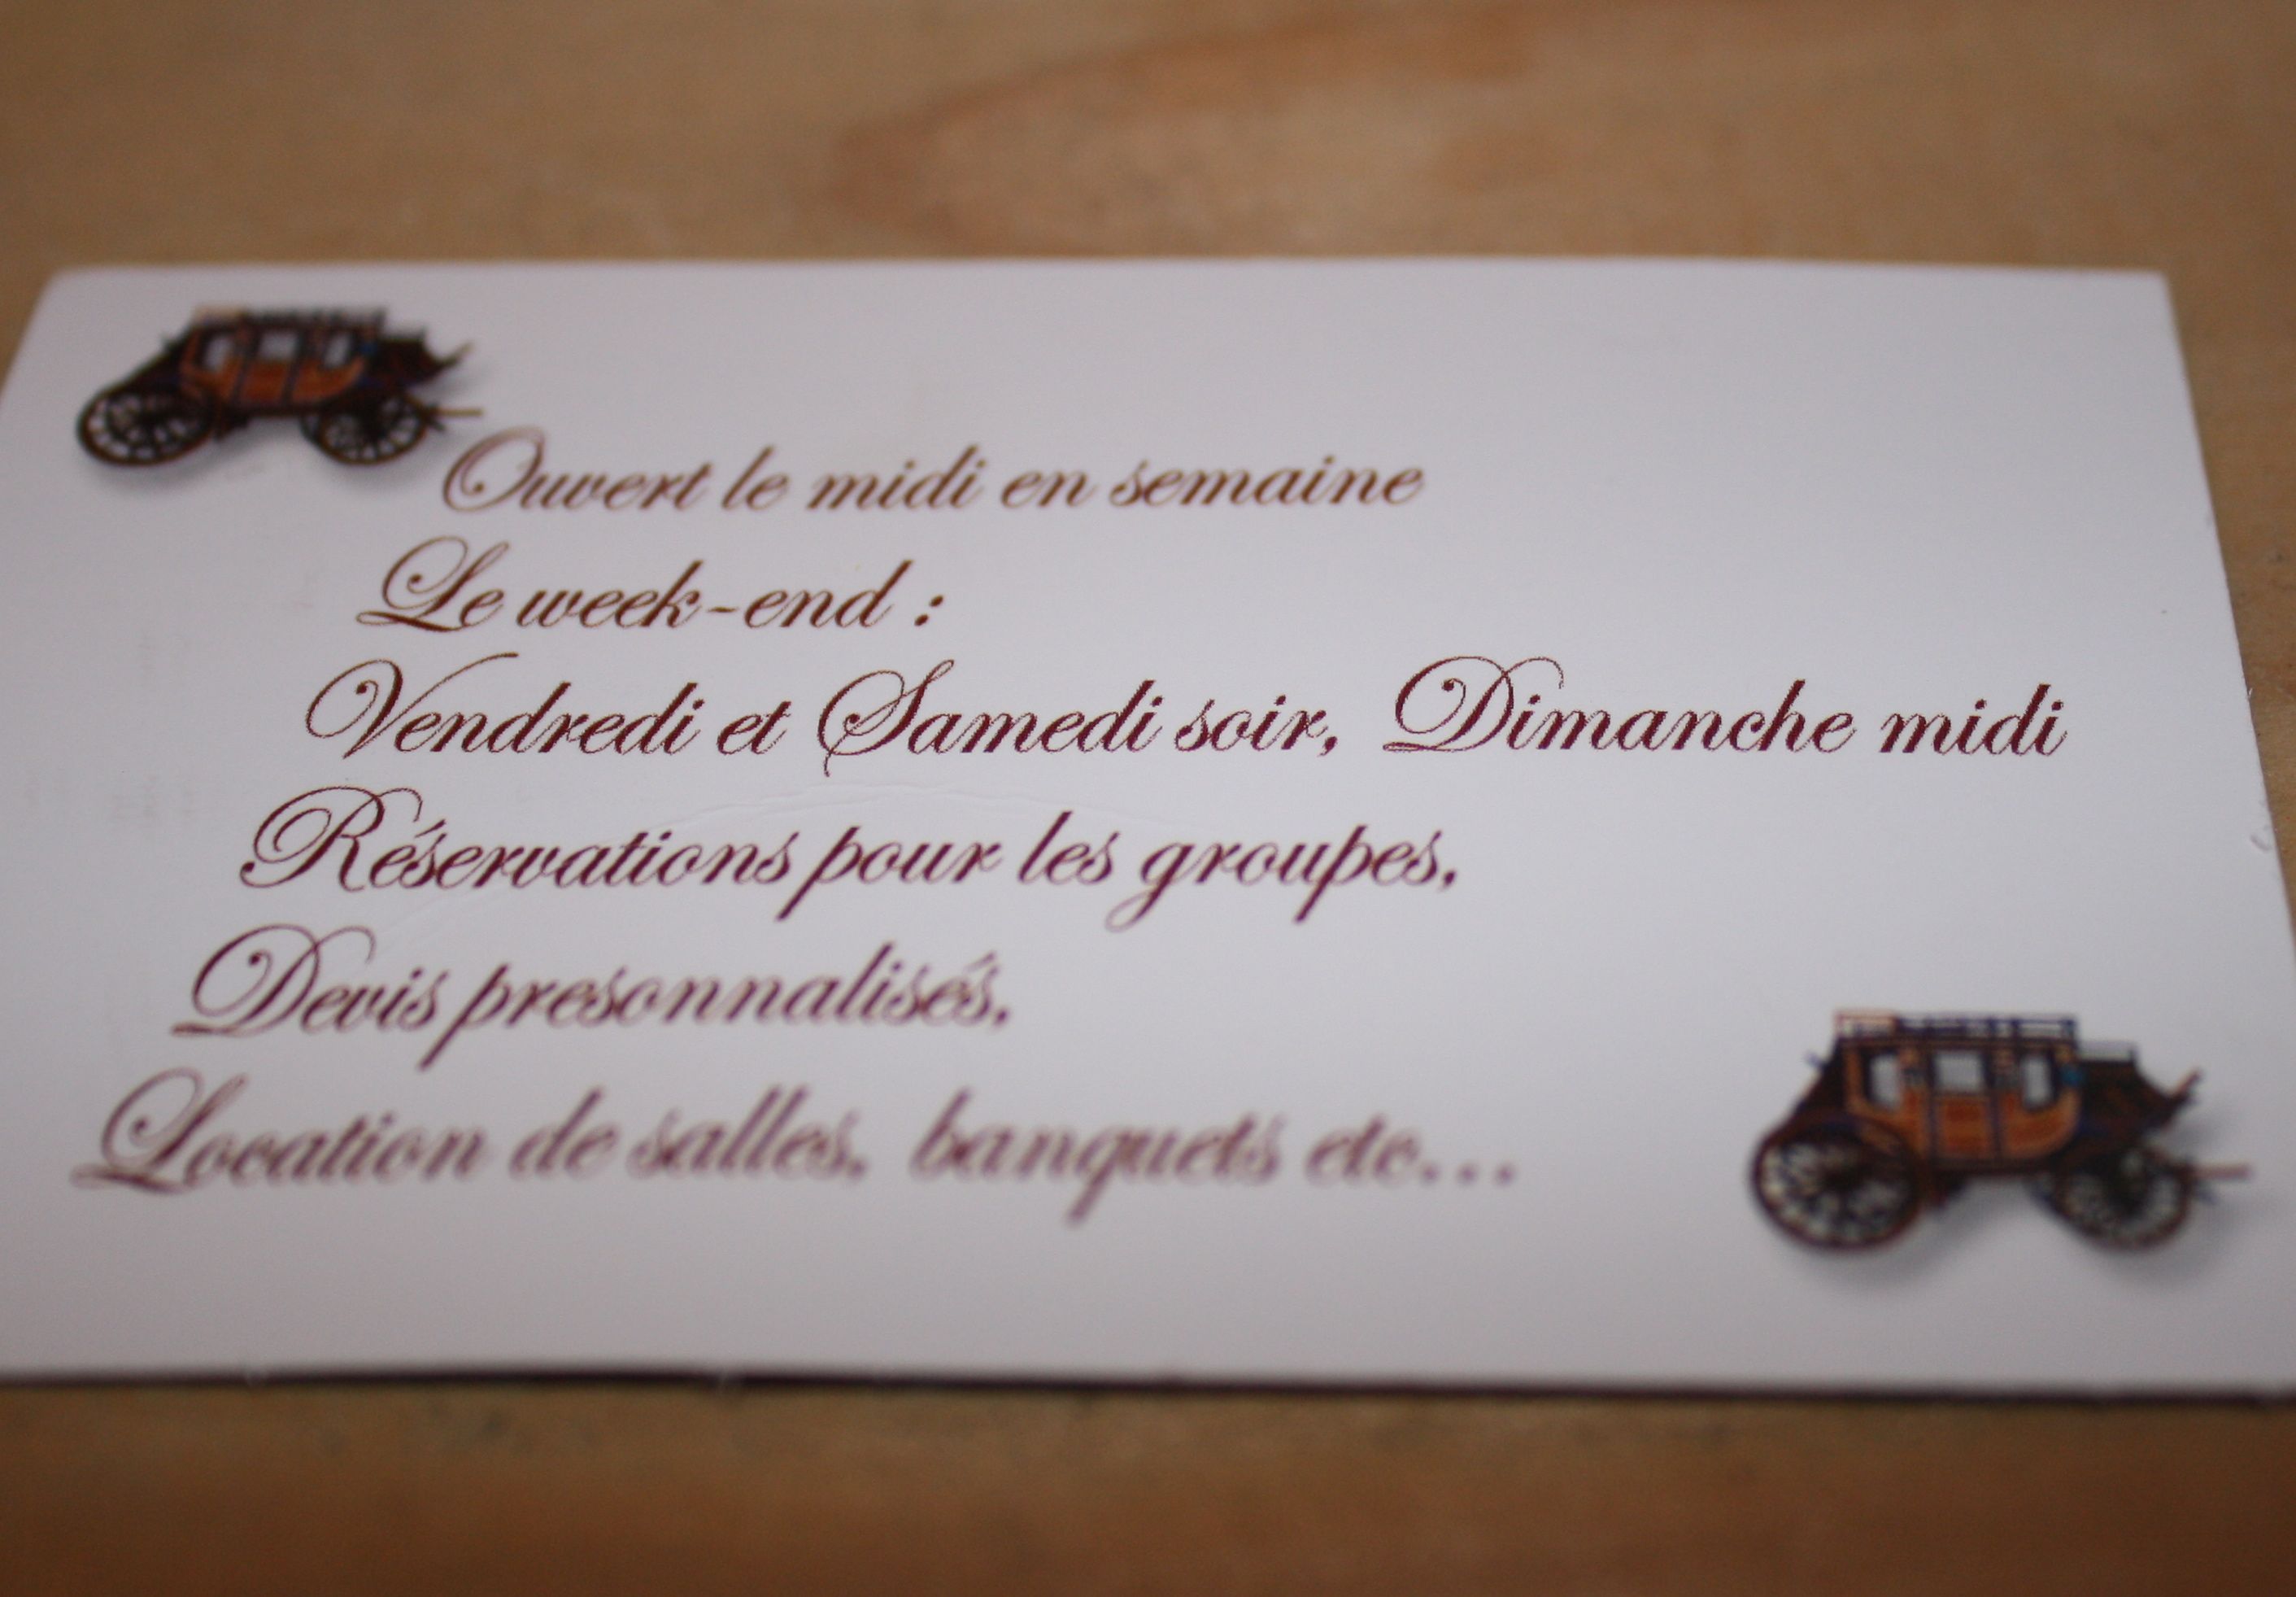 Ouvert le midi en semaine
Le week-end :
Vendredi et Samedi soir, Dimanche midi
Réservations pour les groupes,
Devis presonnalisés,
Location de salles, banquets etc...